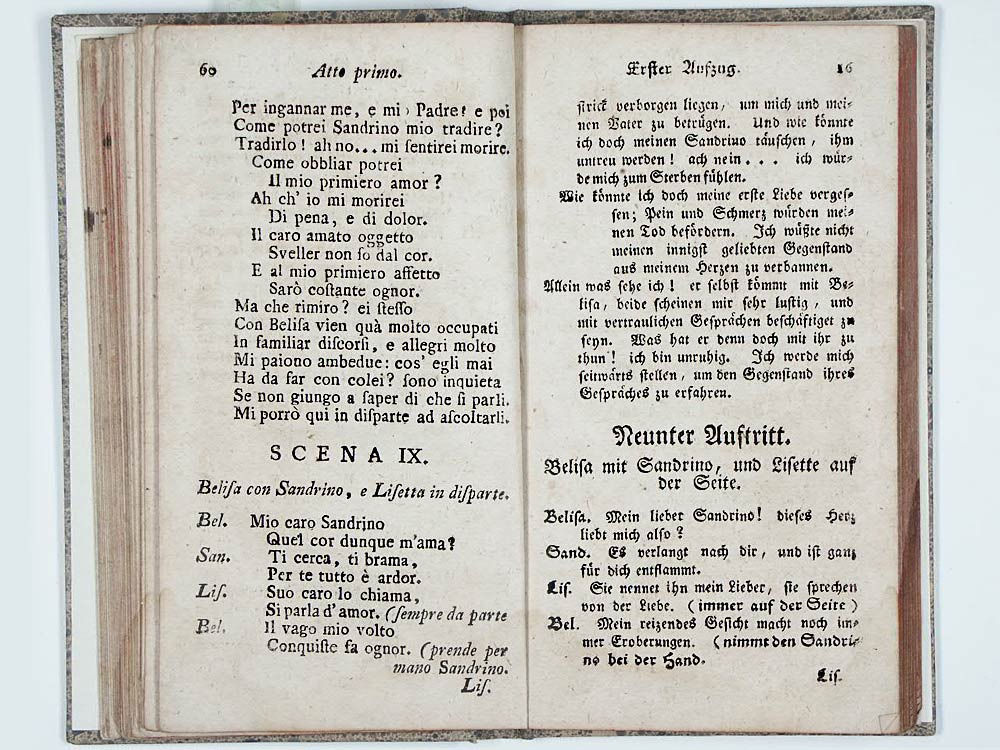 60 Atto primo.
Per ingannar me, e mi› Padre? e poi
Come potrei Sandrino mio tradire?
Tradirlo! ah no... mi ſentirei morire.
Come obbliar potrei
Il mio primiero amor?
Ah ch' io mi morirei
Di pena, e di dolor.
Il caro amato oggetto
Sveller non ſo dal cor.
E al mio primiero affetto
Sarò coſtante ognor.
Ma che rimiro? ei ſteſſo
Con Beliſa vien quà molto occupati
In familiar diſcorſi, e allegri molto
Mi paiono ambedue: cos' egli mai
Ha da far con colei? ſono inquieta
Se non giungo a ſaper di che ſi parli.
Mi porrò qui in diſparte ad aſcoltarli.
SCENA IX.
Beliſa con Sandrino, e Liſetta in diſparte.
Bel. Mio caro Sandrino
Quel cor dunque m'ama?
San. Ti cerca, ti brama,
Per te tutto è ardor.
Liſ. Suo caro lo chiama,
Si parla d'amor. (ſempre da parte
Bel. Il vago mio volto
Conquiſte fa ognor. (prende per
mano Sandrino.
Liſ.
Erſter Aufzug. 16
ſtrick verborgen liegen, um mich und mei-
nen Vater zu betrügen. Und wie könnte
ich doch meinen Sandrino täuſchen, ihm
untreu werden! ach nein... ich wür-
de mich zum Sterben fühlen.
Wie könnte ich doch meine erſte Liebe vergeſ-
ſen; Pein und Schmerz würden mei-
nen Tod befördern. Ich wüßte nicht
meinen innigſt geliebten Gegenſtand
aus meinem Herzen zu verbannen.
Allein was ſehe ich! er ſelbſt kömmt mit Be-
liſa, beide ſcheinen mir ſehr luſtig, und
mit vertraulichen Geſprächen beſchäftiget zu
ſeyn. Was hat er denn doch mit ihr zu
thun! ich bin unruhig. Ich werde mich
ſeitwärts ſtellen, um den Gegenſtand ihres
Geſpräches zu erfahren.
Neunter Auftritt.
Beliſa mit Sandrino, und Liſette auf
der Seite.
Beliſa. Mein lieber Sandrino! dieſes Herz
liebt mich alſo?
Sand. Es verlangt nach dir, und iſt ganz
für dich entflammt.
Liſ. Sie nennet ihn mein Lieber, ſie ſprechen
von der Liebe. (immer auf der Seite)
Bel. Mein reizendes Geſicht macht noch im-
mer Eroberungen. (nimmt den Sandri-
no bei der Hand.
Liſ.